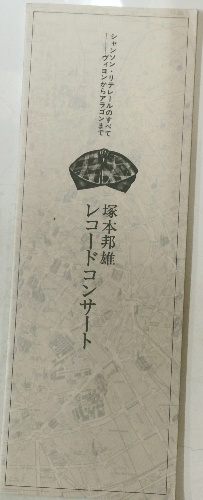 シャンソン・リテレールのすべて
——ヴィヨンからアラゴンまで
塚本邦雄
レコードコンサート